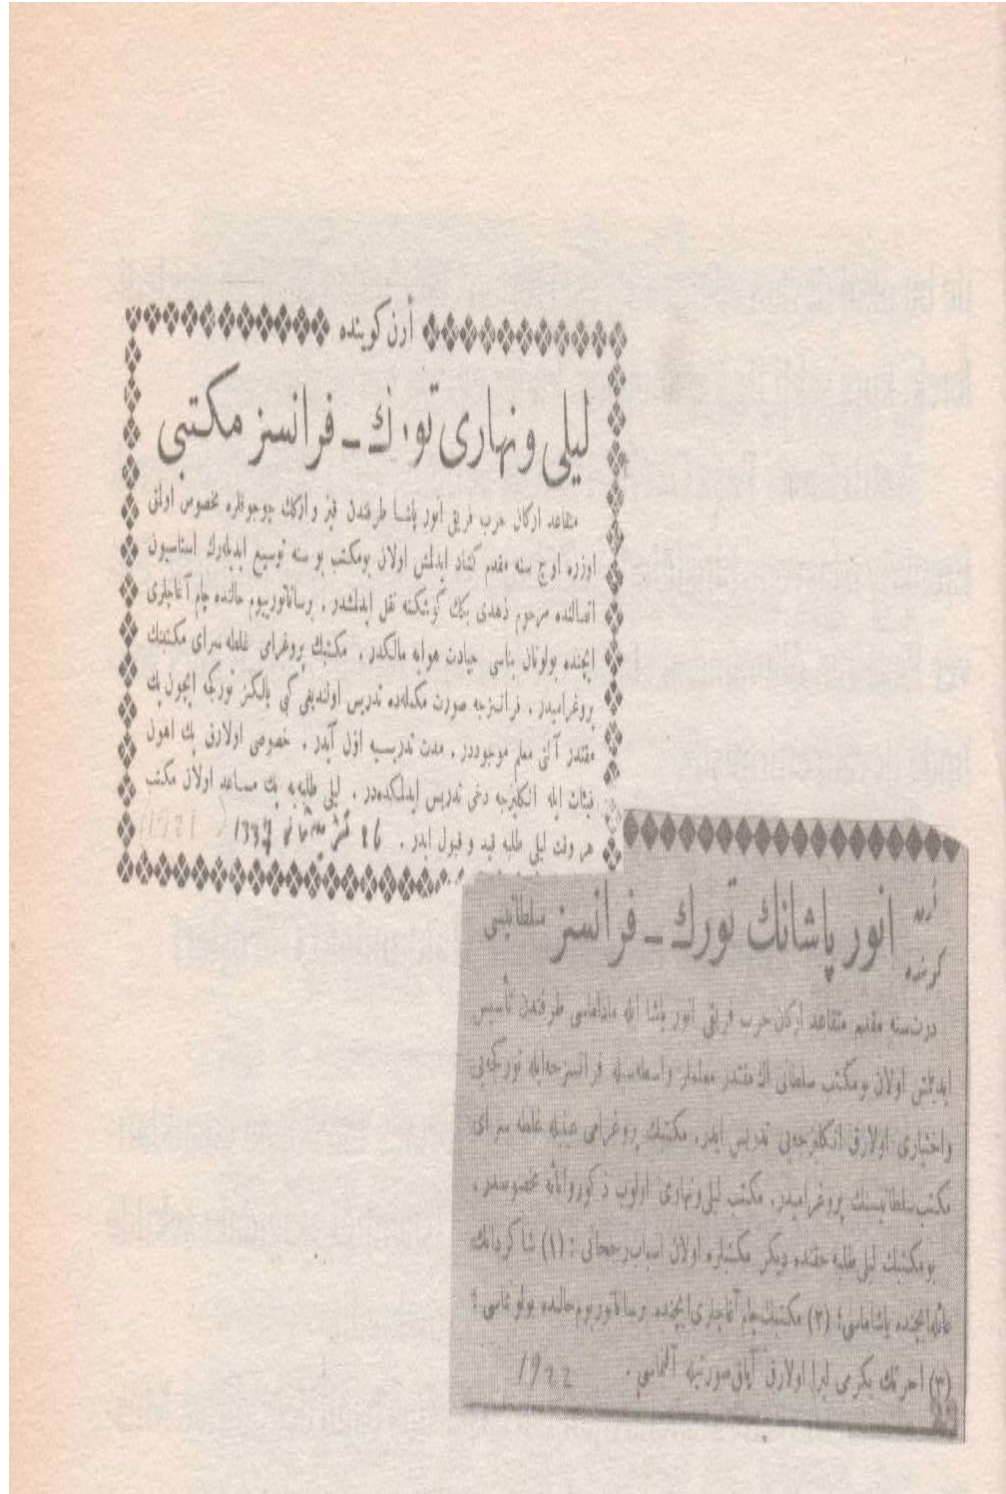 أرن كوينده
ليلى و نهارى تورك ـ فرانسز مكتبى
متقاعد اركان حرب فريق انور پاشا طرفندن قيز و اركك چوجوقلره مخصوص اولمق
اوزره اوچ سنه مقدم كشاد ايدلمش اولان بومكتب بو سنه توسيع ايديله‌رك استاسيون
اتصالنده مرحوم زهدى بكك كوشكنه نقل ايدلمشدر . برساناتوريوم حالنده چام آغاجلرى
ايچنده بولونان بناسى جيادت هوايه مالكدر . مكتبك پروغرامى غلطه سراى مكتبنك
پروغراميدر . فرانسزجه صورت مكمله‌ده تدريس اولنديغى كبى يالكز توركجه ايچون پك
مقتدر آلتى معلم موجوددر . مدت تدريسيه اون آيدر . خصوصى اولارق پك اهون
فيئات ايله انكليزجه دخى تدريس ايدلمكده‌در . ليلى طلبه‌يه پك مساعد اولان مكتب
هر وقت ليلى طلبه قيد و قبول ايدر .
أرن كوينده انور پاشانك تورك ـ فرانسز سلطانيسى
درت سنه مقدم متقاعد اركان حرب فريق انور پاشا ايله مادماسى طرفندن تأسيس
ايدلمش اولان بو مكتب سلطانى اك مقتدر معلملر واسطه‌سيله فرانسزجه ايله توركجه‌يى
واختيارى اولارق انكليزجه‌يى تدريس ايدر . مكتبك پروغرامى عينيله غلطه سراى
مكتب سلطانيسنك پروغراميدر . مكتب ليلى ونهارى اولوب ذكور واناثه مخصوصدر .
بو مكتبك ليلى طلبه حقنده ديكر مكتبلره اولان اسباب رجحانى : (١) شاكردانك
عائله ايچنده ياشاماسى ؛ (٢) مكتبك چام آغاجلرى ايچنده برساناتوريوم حالنده بولونماسى ؛
(٣) اجرتك يكرمى ليرا اولارق آيلق صورتيله آلنماسى .
1922